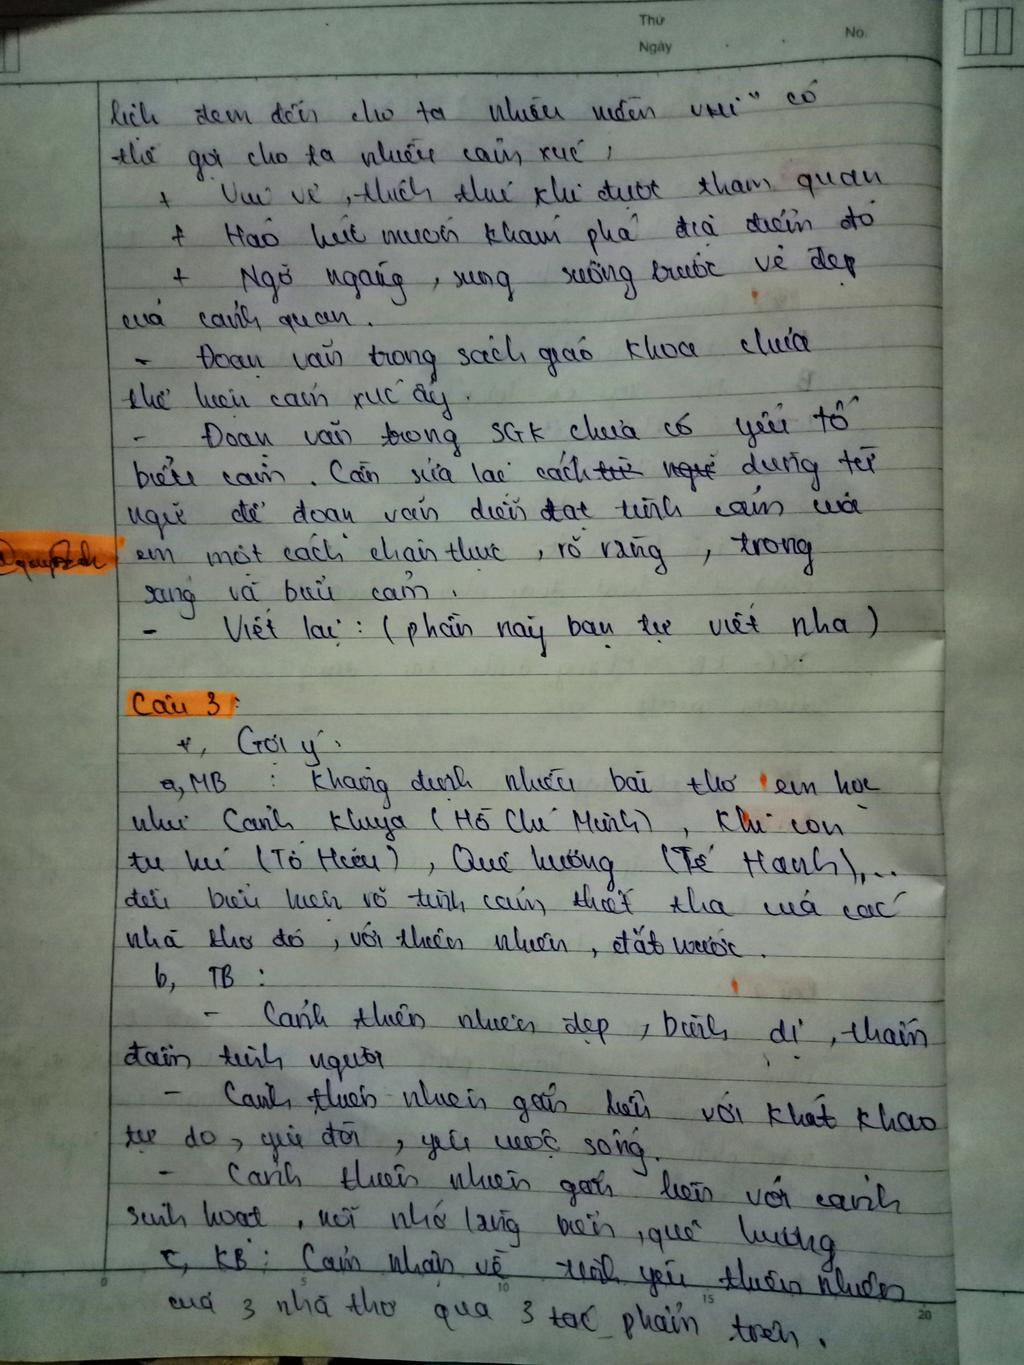 Thứ
Ngày
No.
lịch đem đến cho ta nhiều niềm vui" có
thể gợi cho ta nhiều cảm xúc:
+ Vui vẻ, thích thú khi được tham quan
+ Háo hức muốn khám phá địa điểm đó
+ Ngỡ ngàng, sung sướng trước vẻ đẹp
của cảnh quan.
- Đoạn văn trong sách giáo khoa chưa
thể hiện cảm xúc ấy.
- Đoạn văn trong SGK chưa có yếu tố
biểu cảm. Cần sửa lại cách dùng từ
ngữ để đoạn văn diễn đạt tình cảm của
em một cách chân thực, rõ ràng, trong
sáng và biểu cảm.
- Viết lại: (phần này bạn tự viết nha)
Câu 3:
+, Gợi ý:
a, MB: Khẳng định nhiều bài thơ em học
như Cảnh khuya (Hồ Chí Minh), Khi con
tu hú (Tố Hữu), Quê hương (Tế Hanh),...
đều biểu hiện rõ tình cảm thiết tha của các
nhà thơ đó, với thiên nhiên, đất nước.
b, TB:
- Cảnh thiên nhiên đẹp, bình dị, thấm
đẫm tình người
- Cảnh thiên nhiên gắn liền với khát khao
tự do, yêu đời, yêu cuộc sống.
- Cảnh thiên nhiên gắn liền với cảnh
sinh hoạt, nỗi nhớ làng biển, quê hương
c, KB: Cảm nhận về tình yêu thiên nhiên
của 3 nhà thơ qua 3 tác phẩm trên.
0 5 10 15 20